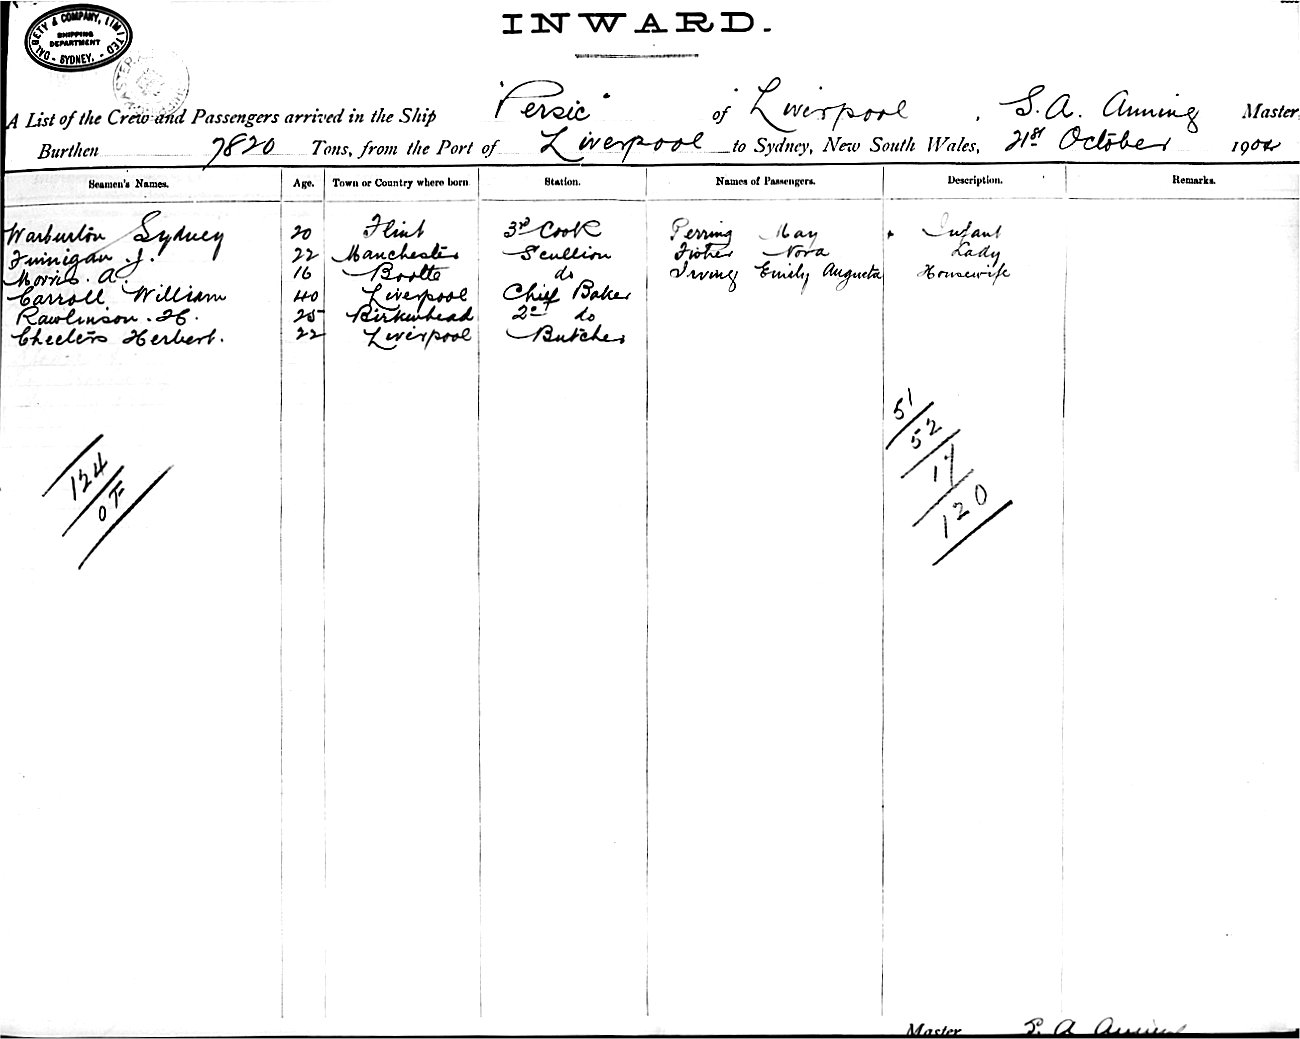 DALGETY & COMPANY, LIMITED
SHIPPING
DEPARTMENT
- SYDNEY. -
INWARD.
A List of the Crew and Passengers arrived in the Ship "Persic" of Liverpool, S. A. Anning Master,
Burthen 7820 Tons, from the Port of Liverpool to Sydney, New South Wales, 21st October 1902
Seamen's Names. Age. Town or Country where born Station. Names of Passengers. Description. Remarks.
Warburton Sydney 20 Flint 3rd Cook Perring May Infant
Finnigan. J. 22 Manchester Scullion Fisher Nora Lady
Morris. A. 16 Bootle do Irving Emily Augusta Housewife
Carroll William 40 Liverpool Chief Baker
Rawlinson. H. 25 Birkenhead 2nd do
Cheeters Herbert. 22 Liverpool Butcher
51
52
17
120
124
OF
Master S. A. Anning